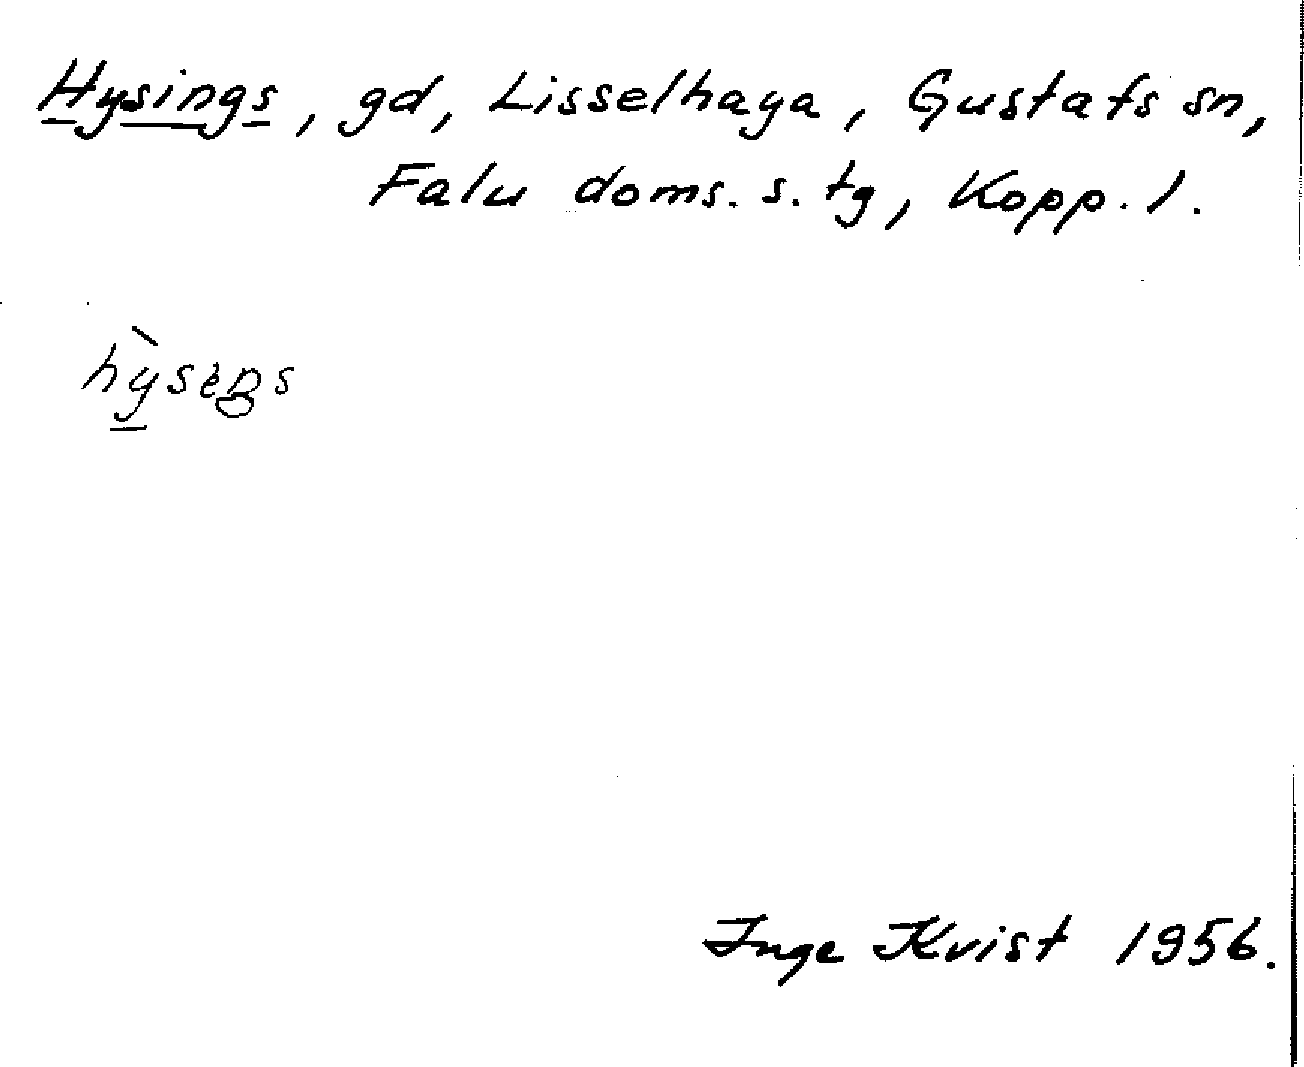 Hysings, gd, Lisselhaga, Gustafs sn,
Falu doms. s. tg, Kopp. l.
Inge Kvist 1956.